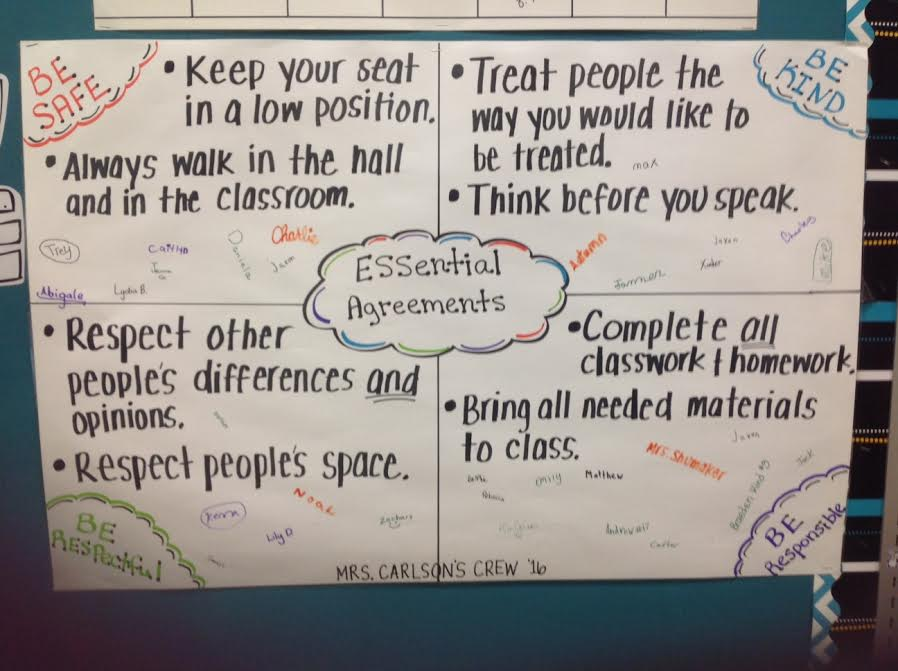 BE
SAFE
• Keep your seat
in a low position.
• Always walk in the hall
and in the classroom.
Trey
Caitlin
Daniela
Charlie
Jaxon
Abigale
Lydia B.
BE
KIND
• Treat people the
way you would like to
be treated.
max
• Think before you speak.
Autumn
Jaxon
Charley
Xander
ESSential
Agreements
• Respect other
people's differences and
opinions.
• Respect people's space.
Kenna
Noal
Lily D
BE
RESpectful
• Complete all
classwork + homework.
• Bring all needed materials
to class.
Mrs. Shumaker
Jaxon
Emily
Matthew
Jack
Carter
BE
Responsible
MRS. CARLSON'S CREW '16